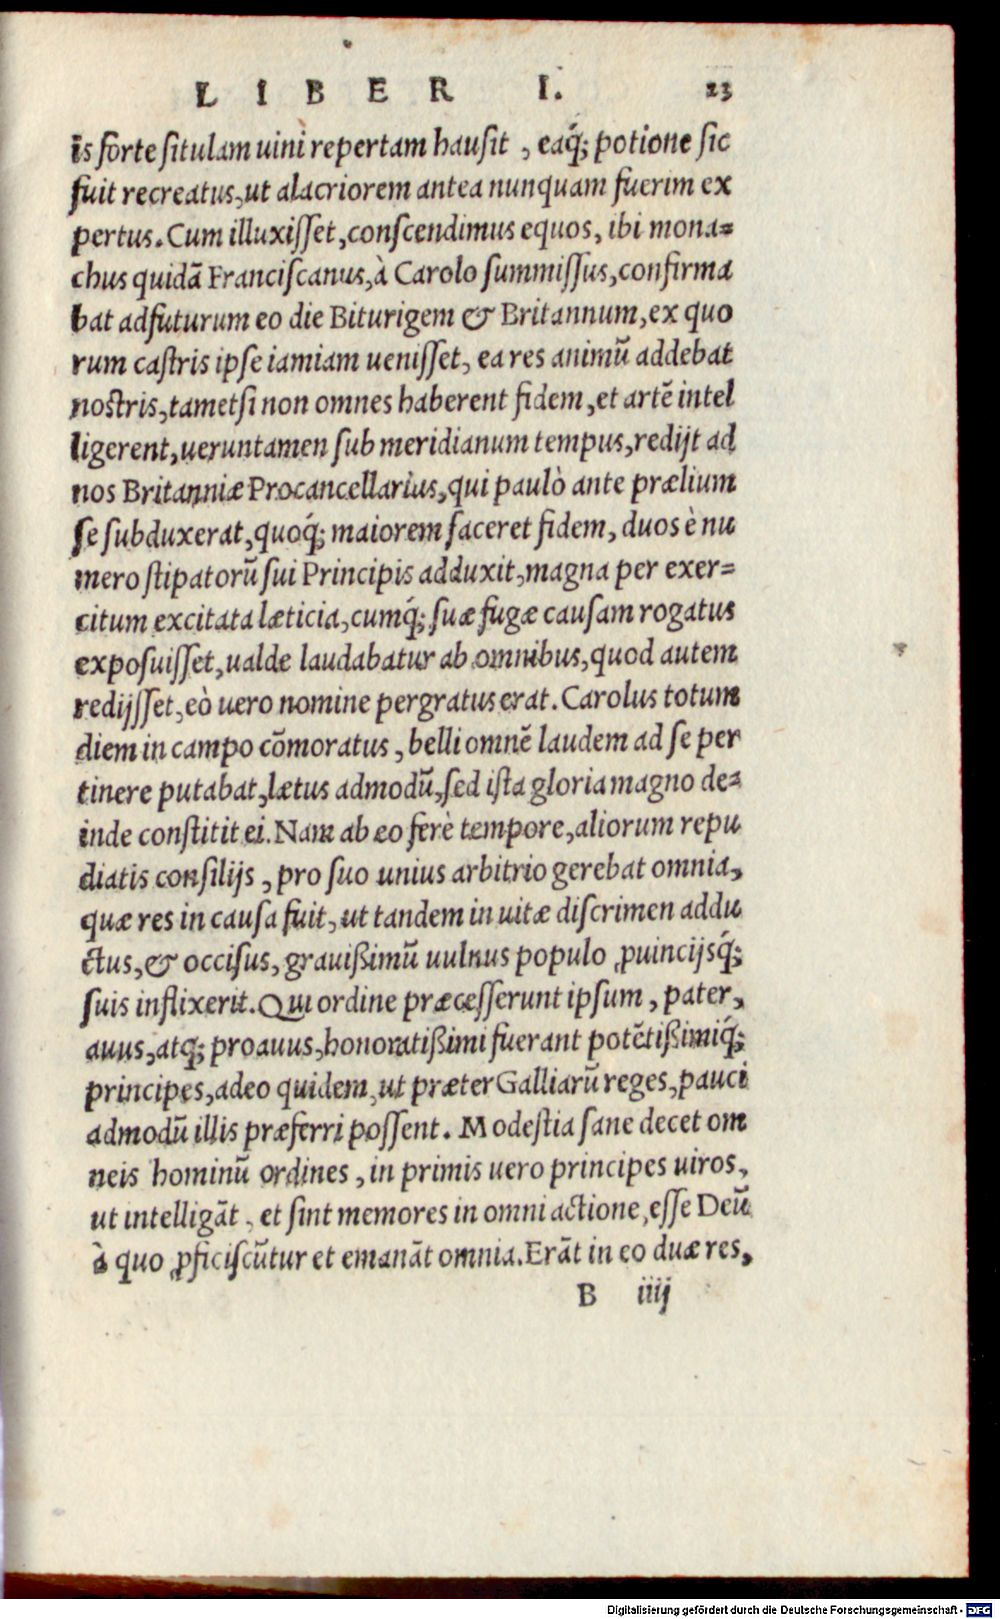 LIBER I. 23
is forte situlam uini repertam hausit, eaq́; potione sic
fuit recreatus, ut alacriorem antea nunquam fuerim ex
pertus. Cum illuxisset, conscendimus equos, ibi mona=
chus quidā Franciscanus, à Carolo summissus, confirma
bat adfuturum eo die Biturigem & Britannum, ex quo
rum castris ipse iamiam uenisset, ea res animū addebat
nostris, tametsi non omnes haberent fidem, et artē intel
ligerent, ueruntamen sub meridianum tempus, redijt ad
nos Britanniæ Procancellarius, qui paulò ante prælium
se subduxerat, quoq́; maiorem faceret fidem, duos è nu
mero stipatorū sui Principis adduxit, magna per exer=
citum excitata læticia, cumq́; suæ fugæ causam rogatus
exposuisset, ualde laudabatur ab omnibus, quod autem
redijsset, eò uero nomine pergratus erat. Carolus totum
diem in campo cōmoratus, belli omnē laudem ad se per
tinere putabat, lætus admodū, sed ista gloria magno de=
inde constitit ei. Nam ab eo ferè tempore, aliorum repu
diatis consilijs, pro suo unius arbitrio gerebat omnia,
quæ res in causa fuit, ut tandem in uitæ discrimen addu
ctus, & occisus, grauißimū uulnus populo ꝓuincijsq́;
suis inflixerit. Qui ordine præcesserunt ipsum, pater,
auus, atq; proauus, honoratißimi fuerant potētißimiq́;
principes, adeo quidem, ut præter Galliarū reges, pauci
admodū illis præferri possent. Modestia sane decet om
neis hominū ordines, in primis uero principes uiros,
ut intelligāt, et sint memores in omni actione, esse Deū
à quo ꝓficiscūtur et emanāt omnia. Erāt in eo duæ res,
B iiij
Digitalisierung gefördert durch die Deutsche Forschungsgemeinschaft - DFG